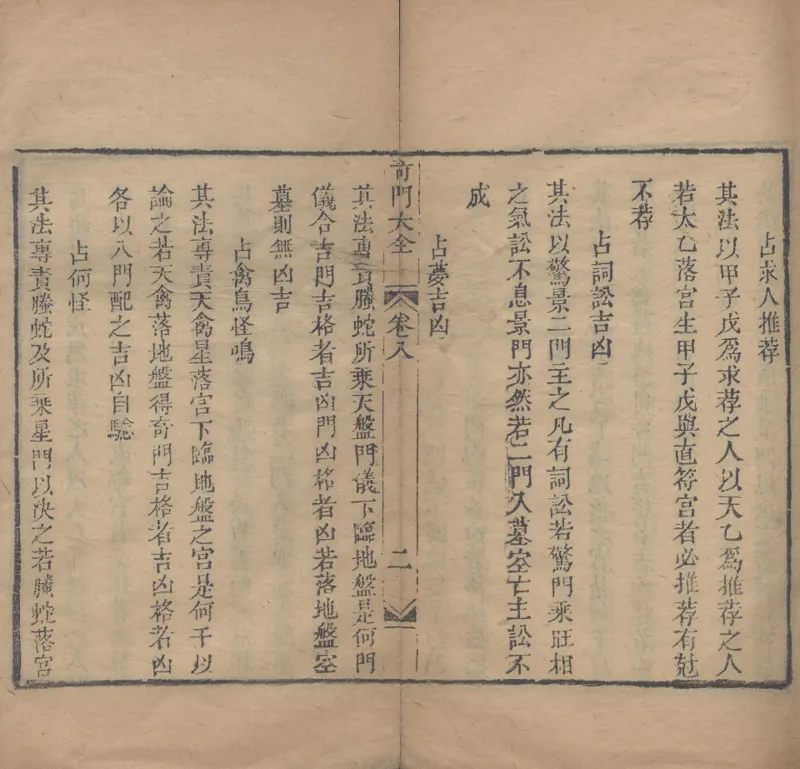 占求人推荐
其法以甲子戊爲求荐之人以天乙爲推荐之人
若太乙落宫生甲子戊與直符宫者必推荐有尅
不荐
占詞訟吉凶
其法以驚景二門主之凡有詞訟若驚門乘旺相
之氣訟不息景門亦然若二門入墓空亡主訟不
成
奇門大全
卷八
二
占夢吉凶
其法專責螣蛇所乘天盤門儀下臨地盤是何門
儀合吉門吉格者吉凶門凶格者凶若落地盤空
墓則無凶吉
占禽鳥怪鳴
其法專責天禽星落宫下臨地盤之宫是何干以
論之若天禽落地盤得奇門吉格者吉凶格者凶
各以八門配之吉凶自驗
占何怪
其法專責螣蛇及所乘星門以决之若螣蛇落宫